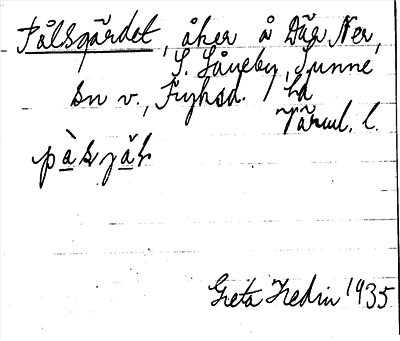 Pålsgärdet, åker å Där Ner,
S. Låneby, Sunne
sn v., Fryksd. hd
Värml. l.
Greta Hedin 1935